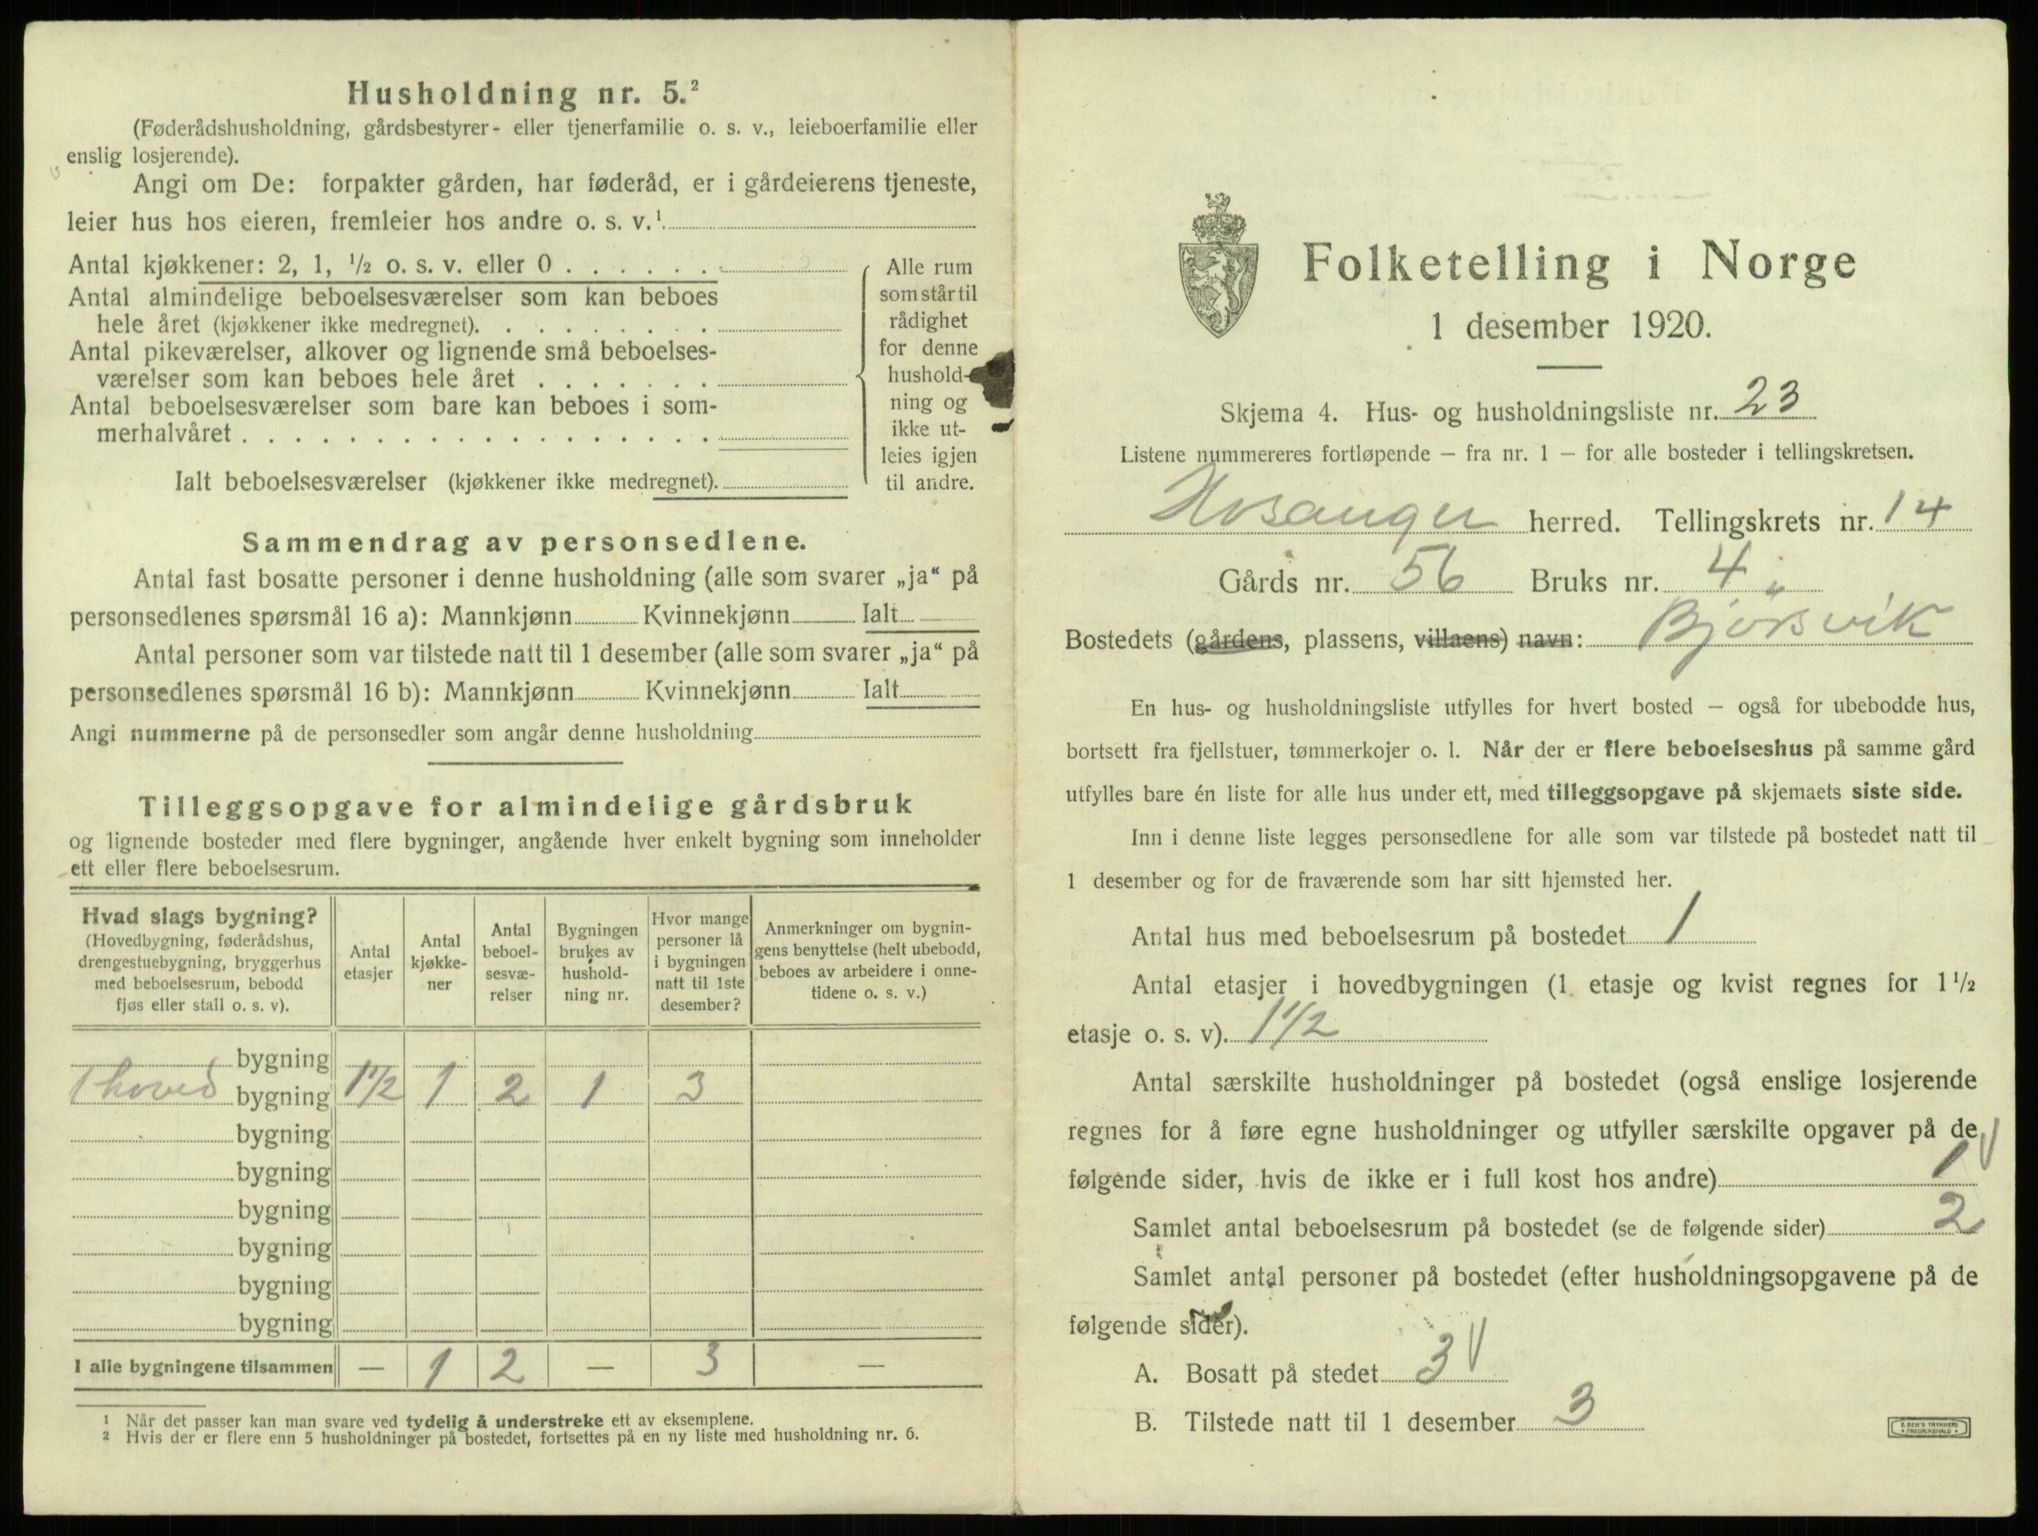 Husholdning nr. 5.²
(Føderådshusholdning, gårdsbestyrer- eller tjenerfamilie o. s. v., leieboerfamilie eller
enslig losjerende).
Angi om De: forpakter gården, har føderåd, er i gårdeierens tjeneste,
leier hus hos eieren, fremleier hos andre o. s. v.¹
Antal kjøkkener: 2, 1, ½ o. s. v. eller 0
Antal almindelige beboelsesværelser som kan beboes
hele året (kjøkkener ikke medregnet).
Antal pikeværelser, alkover og lignende små beboelses-
værelser som kan beboes hele året
Antal beboelsesværelser som bare kan beboes i som-
merhalvåret
Ialt beboelsesværelser (kjøkkener ikke medregnet).
Alle rum
som står til
rådighet
for denne
hushold-
ning og
ikke ut-
leies igjen
til andre.
Sammendrag av personsedlene.
Antal fast bosatte personer i denne husholdning (alle som svarer „ja“ på
personsedlenes spørsmål 16 a): Mannkjønn Kvinnekjønn Ialt
Antal personer som var tilstede natt til 1 desember (alle som svarer „ja“ på
personsedlenes spørsmål 16 b): Mannkjønn Kvinnekjønn Ialt
Angi nummerne på de personsedler som angår denne husholdning
Tilleggsopgave for almindelige gårdsbruk
og lignende bosteder med flere bygninger, angående hver enkelt bygning som inneholder
ett eller flere beboelsesrum.
Hvad slags bygning?
(Hovedbygning, føderådshus,
drengestuebygning, bryggerhus
med beboelsesrum, bebodd
fjøs eller stall o. s. v).
Antal
etasjer
Antal
kjøkke-
ner
Antal
beboel-
sesvæ-
relser
Bygningen
brukes av
hushold-
ning nr.
Hvor mange
personer lå
i bygningen
natt til 1ste
desember?
Anmerkninger om bygnin-
gens benyttelse (helt ubebodd,
beboes av arbeidere i onne-
tidene o. s. v.)
bygning
1 hoved bygning 1½ 1 2 1 3
bygning
bygning
bygning
bygning
bygning
bygning
I alle bygningene tilsammen — 1 2 — 3 —
1 Når det passer kan man svare ved tydelig å understreke ett av eksemplene.
2 Hvis der er flere enn 5 husholdninger på bostedet, fortsettes på en ny liste med husholdning nr. 6.
Folketelling i Norge
1 desember 1920.
Skjema 4. Hus- og husholdningsliste nr. 23
Listene nummereres fortløpende — fra nr. 1 — for alle bosteder i tellingskretsen.
Hosanger herred. Tellingskrets nr. 14
Gårds nr. 56 Bruks nr. 4
Bostedets (gårdens, plassens, villaens) navn: Bjørsvik
En hus- og husholdningsliste utfylles for hvert bosted — også for ubebodde hus,
bortsett fra fjellstuer, tømmerkojer o. l. Når der er flere beboelseshus på samme gård
utfylles bare én liste for alle hus under ett, med tilleggsopgave på skjemaets siste side.
Inn i denne liste legges personsedlene for alle som var tilstede på bostedet natt til
1 desember og for de fraværende som har sitt hjemsted her.
Antal hus med beboelsesrum på bostedet 1
Antal etasjer i hovedbygningen (1 etasje og kvist regnes for 1½
etasje o. s. v). 1½
Antal særskilte husholdninger på bostedet (også enslige losjerende
regnes for å føre egne husholdninger og utfyller særskilte opgaver på de
følgende sider, hvis de ikke er i full kost hos andre) 1
Samlet antal beboelsesrum på bostedet (se de følgende sider) 2
Samlet antal personer på bostedet (efter husholdningsopgavene på de
følgende sider).
A. Bosatt på stedet 3
B. Tilstede natt til 1 desember 3
E. SEM'S TRYKKERI
FREDRIKSHALD